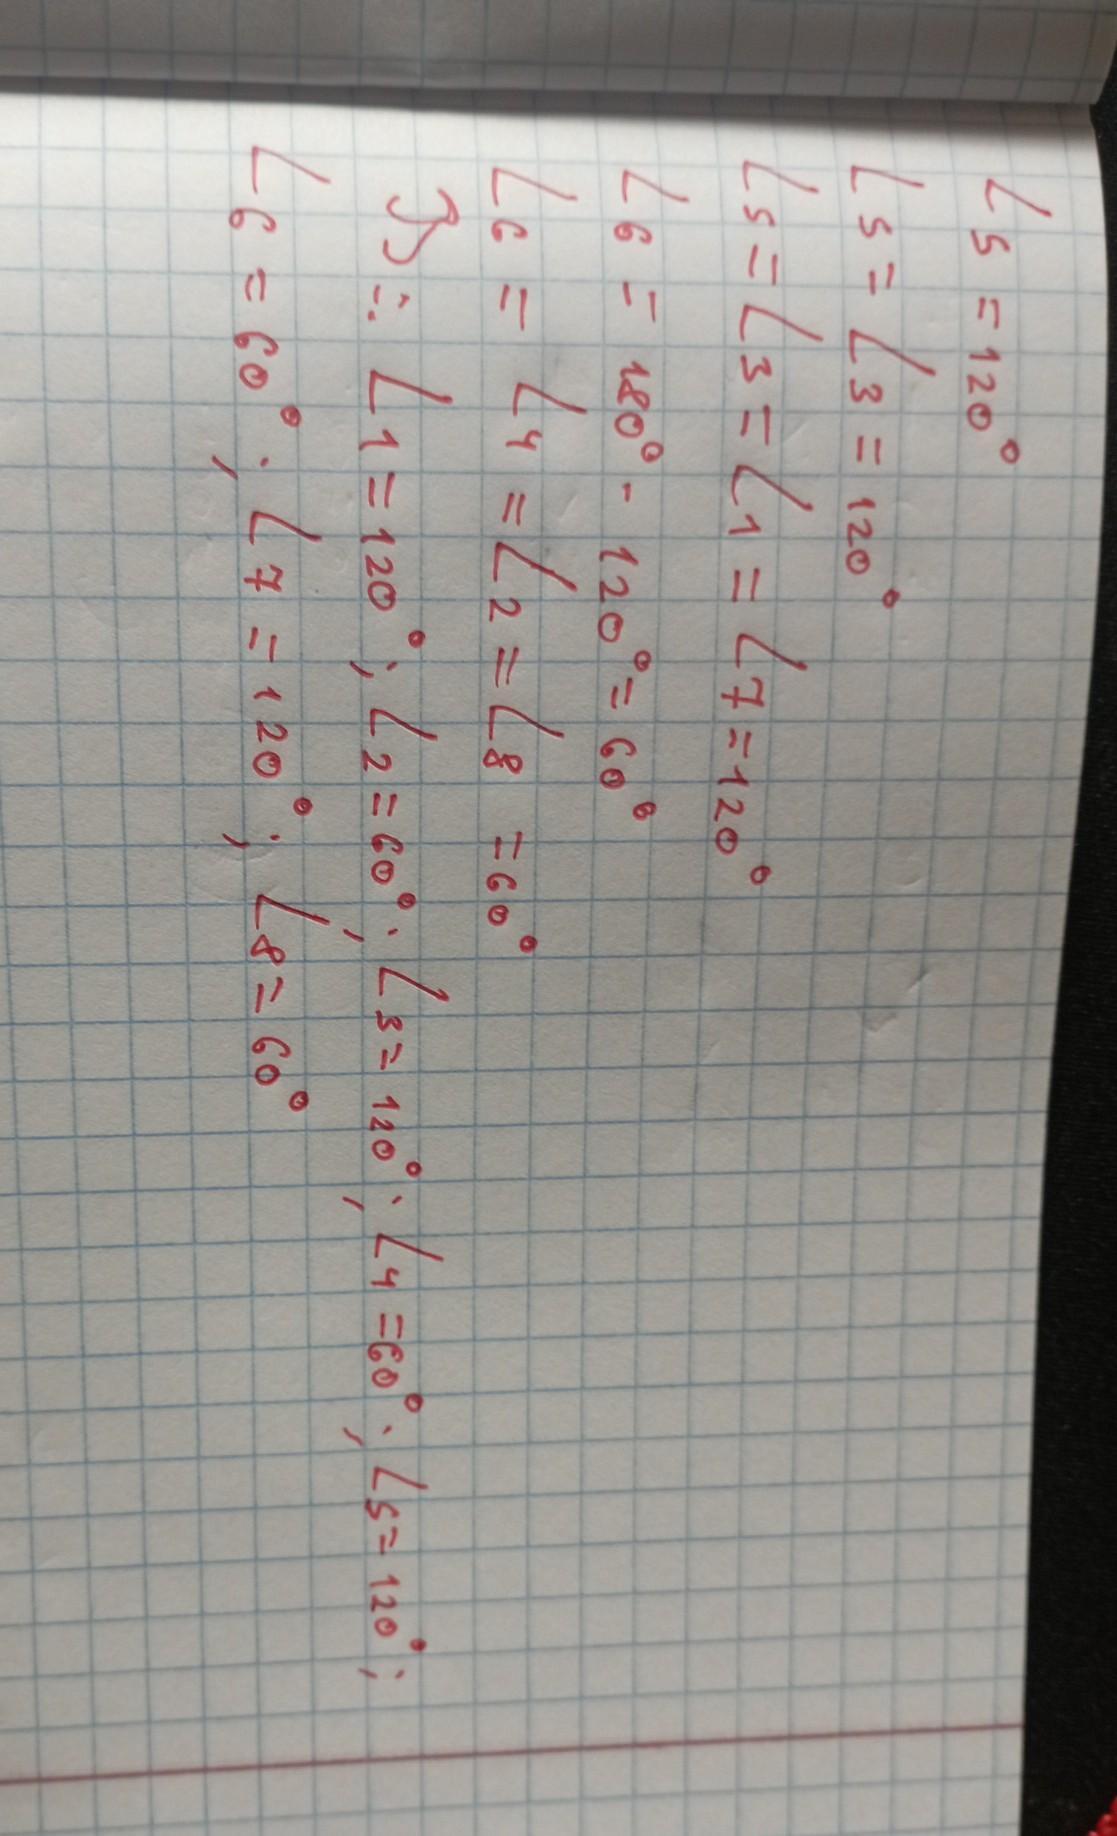 ∠5 = 120°
∠5 = ∠3 = 120°
∠5 = ∠3 = ∠1 = ∠7 = 120°
∠6 = 180° - 120° = 60°
∠6 = ∠4 = ∠2 = ∠8 = 60°
∠1 = 120°; ∠2 = 60°; ∠3 = 120°; ∠4 = 60°; ∠5 = 120°;
∠6 = 60°; ∠7 = 120°; ∠8 = 60°